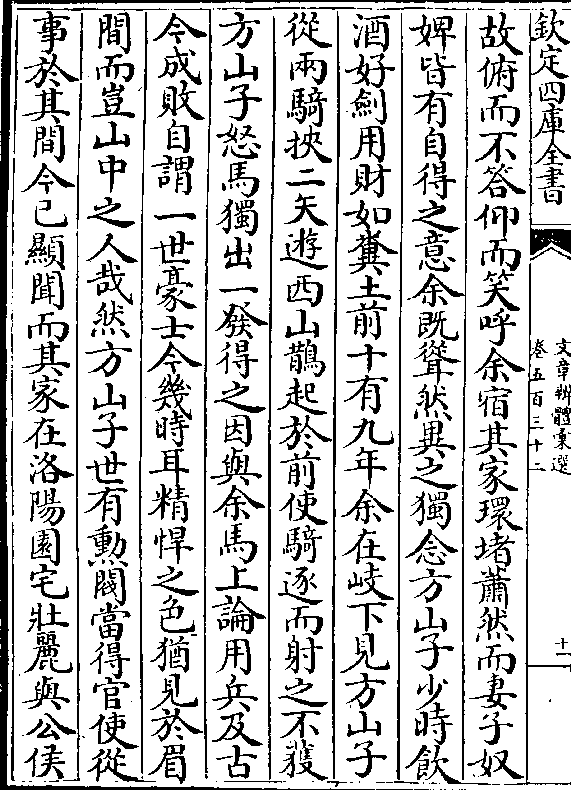 欽定四庫全書
文章辨體彚選
卷五百三十二
十一
故俯而不答仰而笑呼余宿其家環堵蕭然而妻子奴
婢皆有自得之意余既聳然異之獨念方山子少時飲
酒好劍用財如糞土前十有九年余在岐下見方山子
從兩騎挾二矢遊西山鵲起於前使騎逐而射之不獲
方山子怒馬獨出一發得之因與余馬上論用兵及古
今成敗自謂一世豪士今幾時耳精悍之色猶見於眉
間而豈山中之人哉然方山子世有勳閥當得官使從
事於其間今已顯聞而其家在洛陽園宅壯麗與公侯